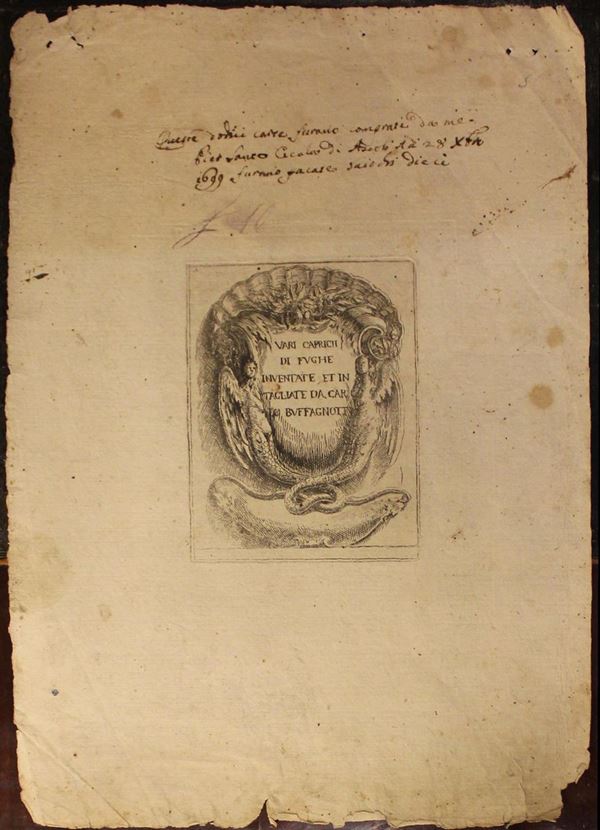 Queste dodici carte furano comprate da me
Pier Santo di Adi 28 Xbre
1699 furano pacate baiochi dieci
VARI CAPRICII
DI FVGHE
INVENTATE ET IN
TAGLIATE DA CAR
LO BVFFAGNOTT